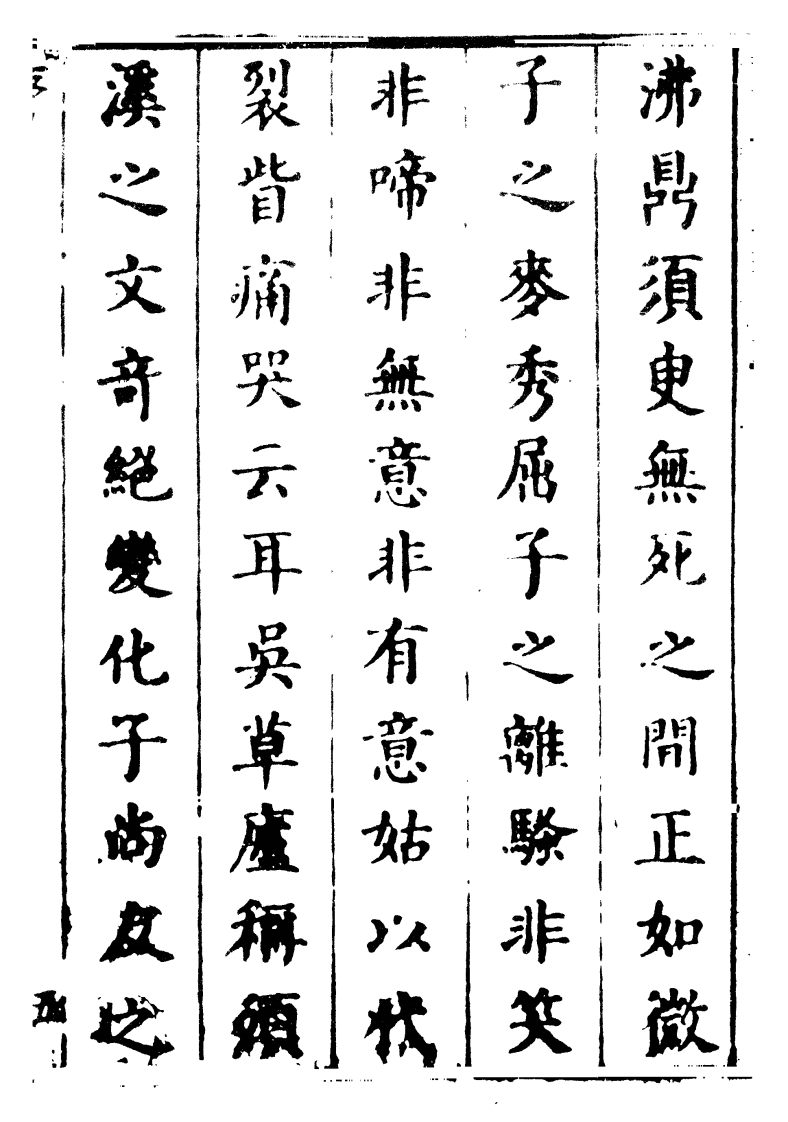 沸鼎須臾無死之間正如微
子之麥秀屈子之離騷非笑
非啼非無意非有意姑以狀
裂眥痛哭云耳吳草廬稱須
溪之文竒絕變化子尚友之